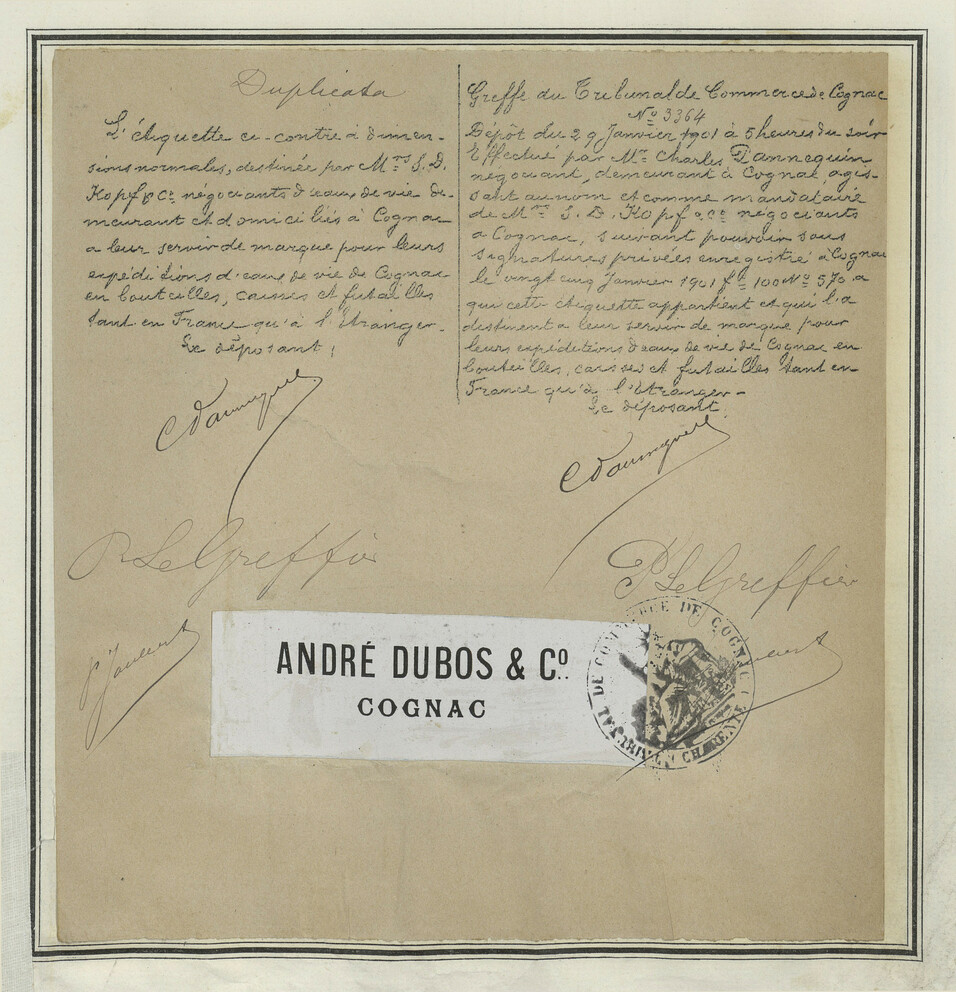 Duplicata
L'étiquette ci-contre à dimen-
sions normales, destinée par Mrs S. D.
Kopf & Co négociants d'eaux de vie de-
meurant et domiciliés à Cognac
a leur servir de marque pour leurs
expéditions d'eaux de vie de Cognac
en bouteilles, caisses et futailles
tant en France qu'à l'Etranger-
Le déposant,
CDannequin
P Le Greffier
Greffe du Tribunal de Commerce de Cognac
No 3364
Dépôt du 29 Janvier 1901 à 5 heures du soir
Effectué par Mr Charles Dannequin
négociant, demeurant à Cognac agis-
sant au nom et comme mandataire
de Mrs S. D. Kopf & Co négociants
a Cognac, suivant pouvoir sous
signatures privées enregistré à Cognac
le vingt cinq Janvier 1901 fo 100 No 570 a
qui cette étiquette appartient et qui la
destinent a leur servir de marque pour
leurs expéditions d'eaux de vie de Cognac en
bouteilles, caisses et futailles tant en
France qu'à l'Etranger-
Le déposant,
CDannequin
P Le Greffier
ANDRÉ DUBOS & Co.
COGNAC
TRIBUNAL DE COMMERCE DE COGNAC
CHARENTE